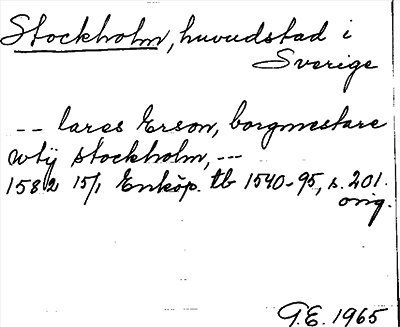 Stockholm, huvudstad i
Sverige
-- lares Erson, borgmestare
wtij stockholm, --
1582 15/1 Enköp. tb 1540-95, s. 201.
orig.
G.E. 1965